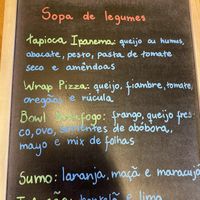 Sopa de legumes
tapioca Ipanema: queijo ou humus,
abacate, pesto, pasta de tomate
seco e amêndoas
Wrap Pizza: queijo, fiambre, tomate,
oregãos e rúcula
Bowl Botafogo: frango, queijo fres-
co, ovo, sementes de abóbora,
mayo e mix de folhas
Sumo: laranja, maçã e maracujá
e lima